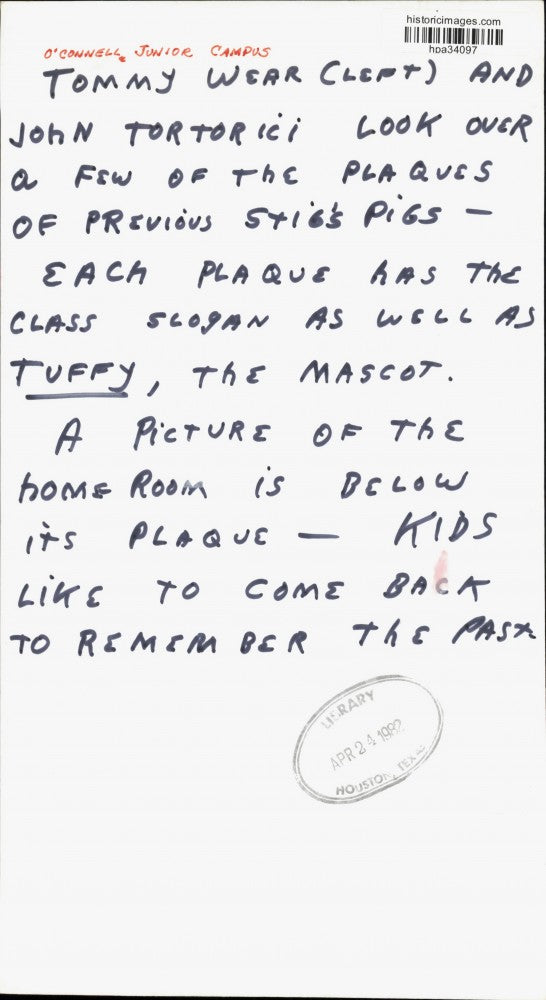 historicimages.com
hpa34097
O'CONNELL JUNIOR CAMPUS
TOMMY WEAR (LEFT) AND
JOHN TORTORICI LOOK OVER
A FEW OF THE PLAQUES
OF PREVIOUS STIG'S PIGS —
EACH PLAQUE HAS THE
CLASS SLOGAN AS WELL AS
TUFFY, THE MASCOT.
A PICTURE OF THE
HOME ROOM IS BELOW
ITS PLAQUE — KIDS
LIKE TO COME BACK
TO REMEMBER THE PAST
LIBRARY
APR 24 1982
HOUSTON, TEXAS